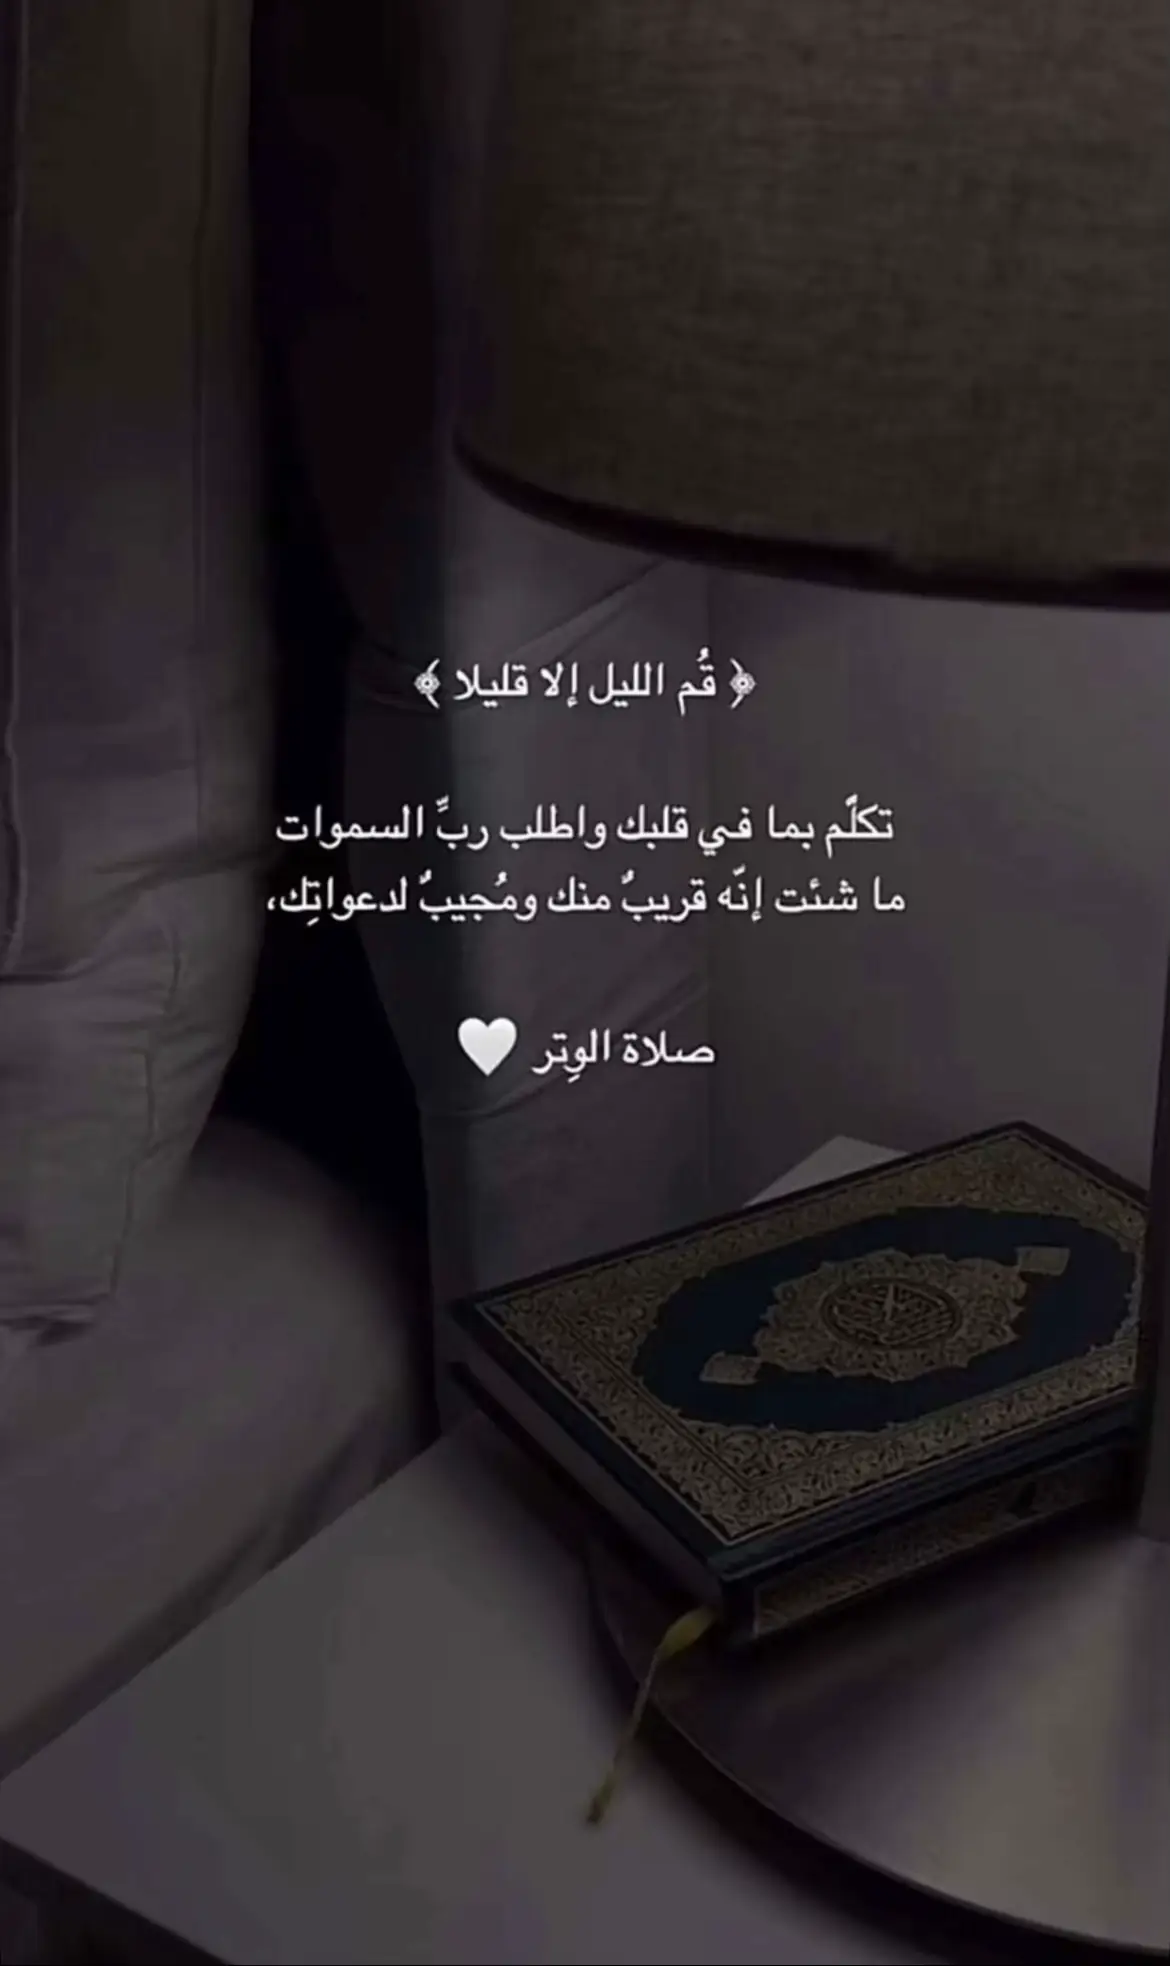 ﴿ قُم الليل إلا قليلا ﴾
تكلَّم بما في قلبك واطلب ربِّ السموات
ما شئت إنّه قريبٌ منك ومُجيبٌ لدعواتِك،
صلاة الوِتر 🤍